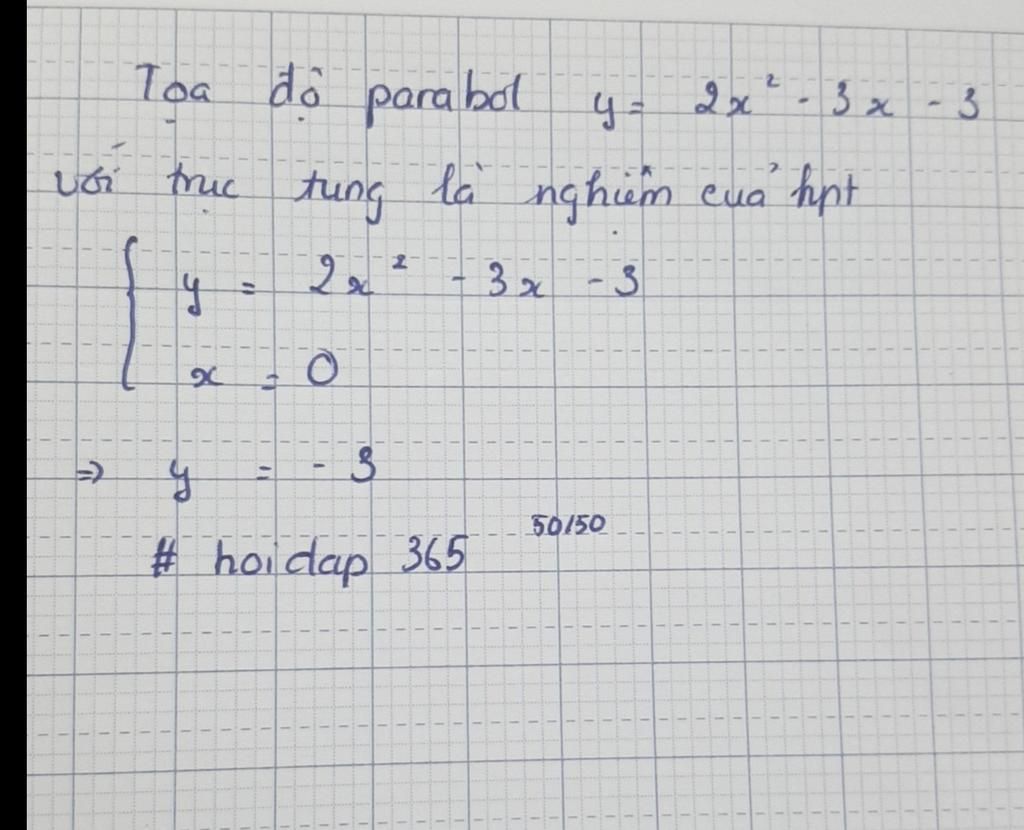 Tọa độ parabol y = 2x² - 3x - 3
với trục tung là nghiệm của hpt
{ y = 2x² - 3x - 3
x = 0
⇒ y = - 3
# hoidap 365 50/50